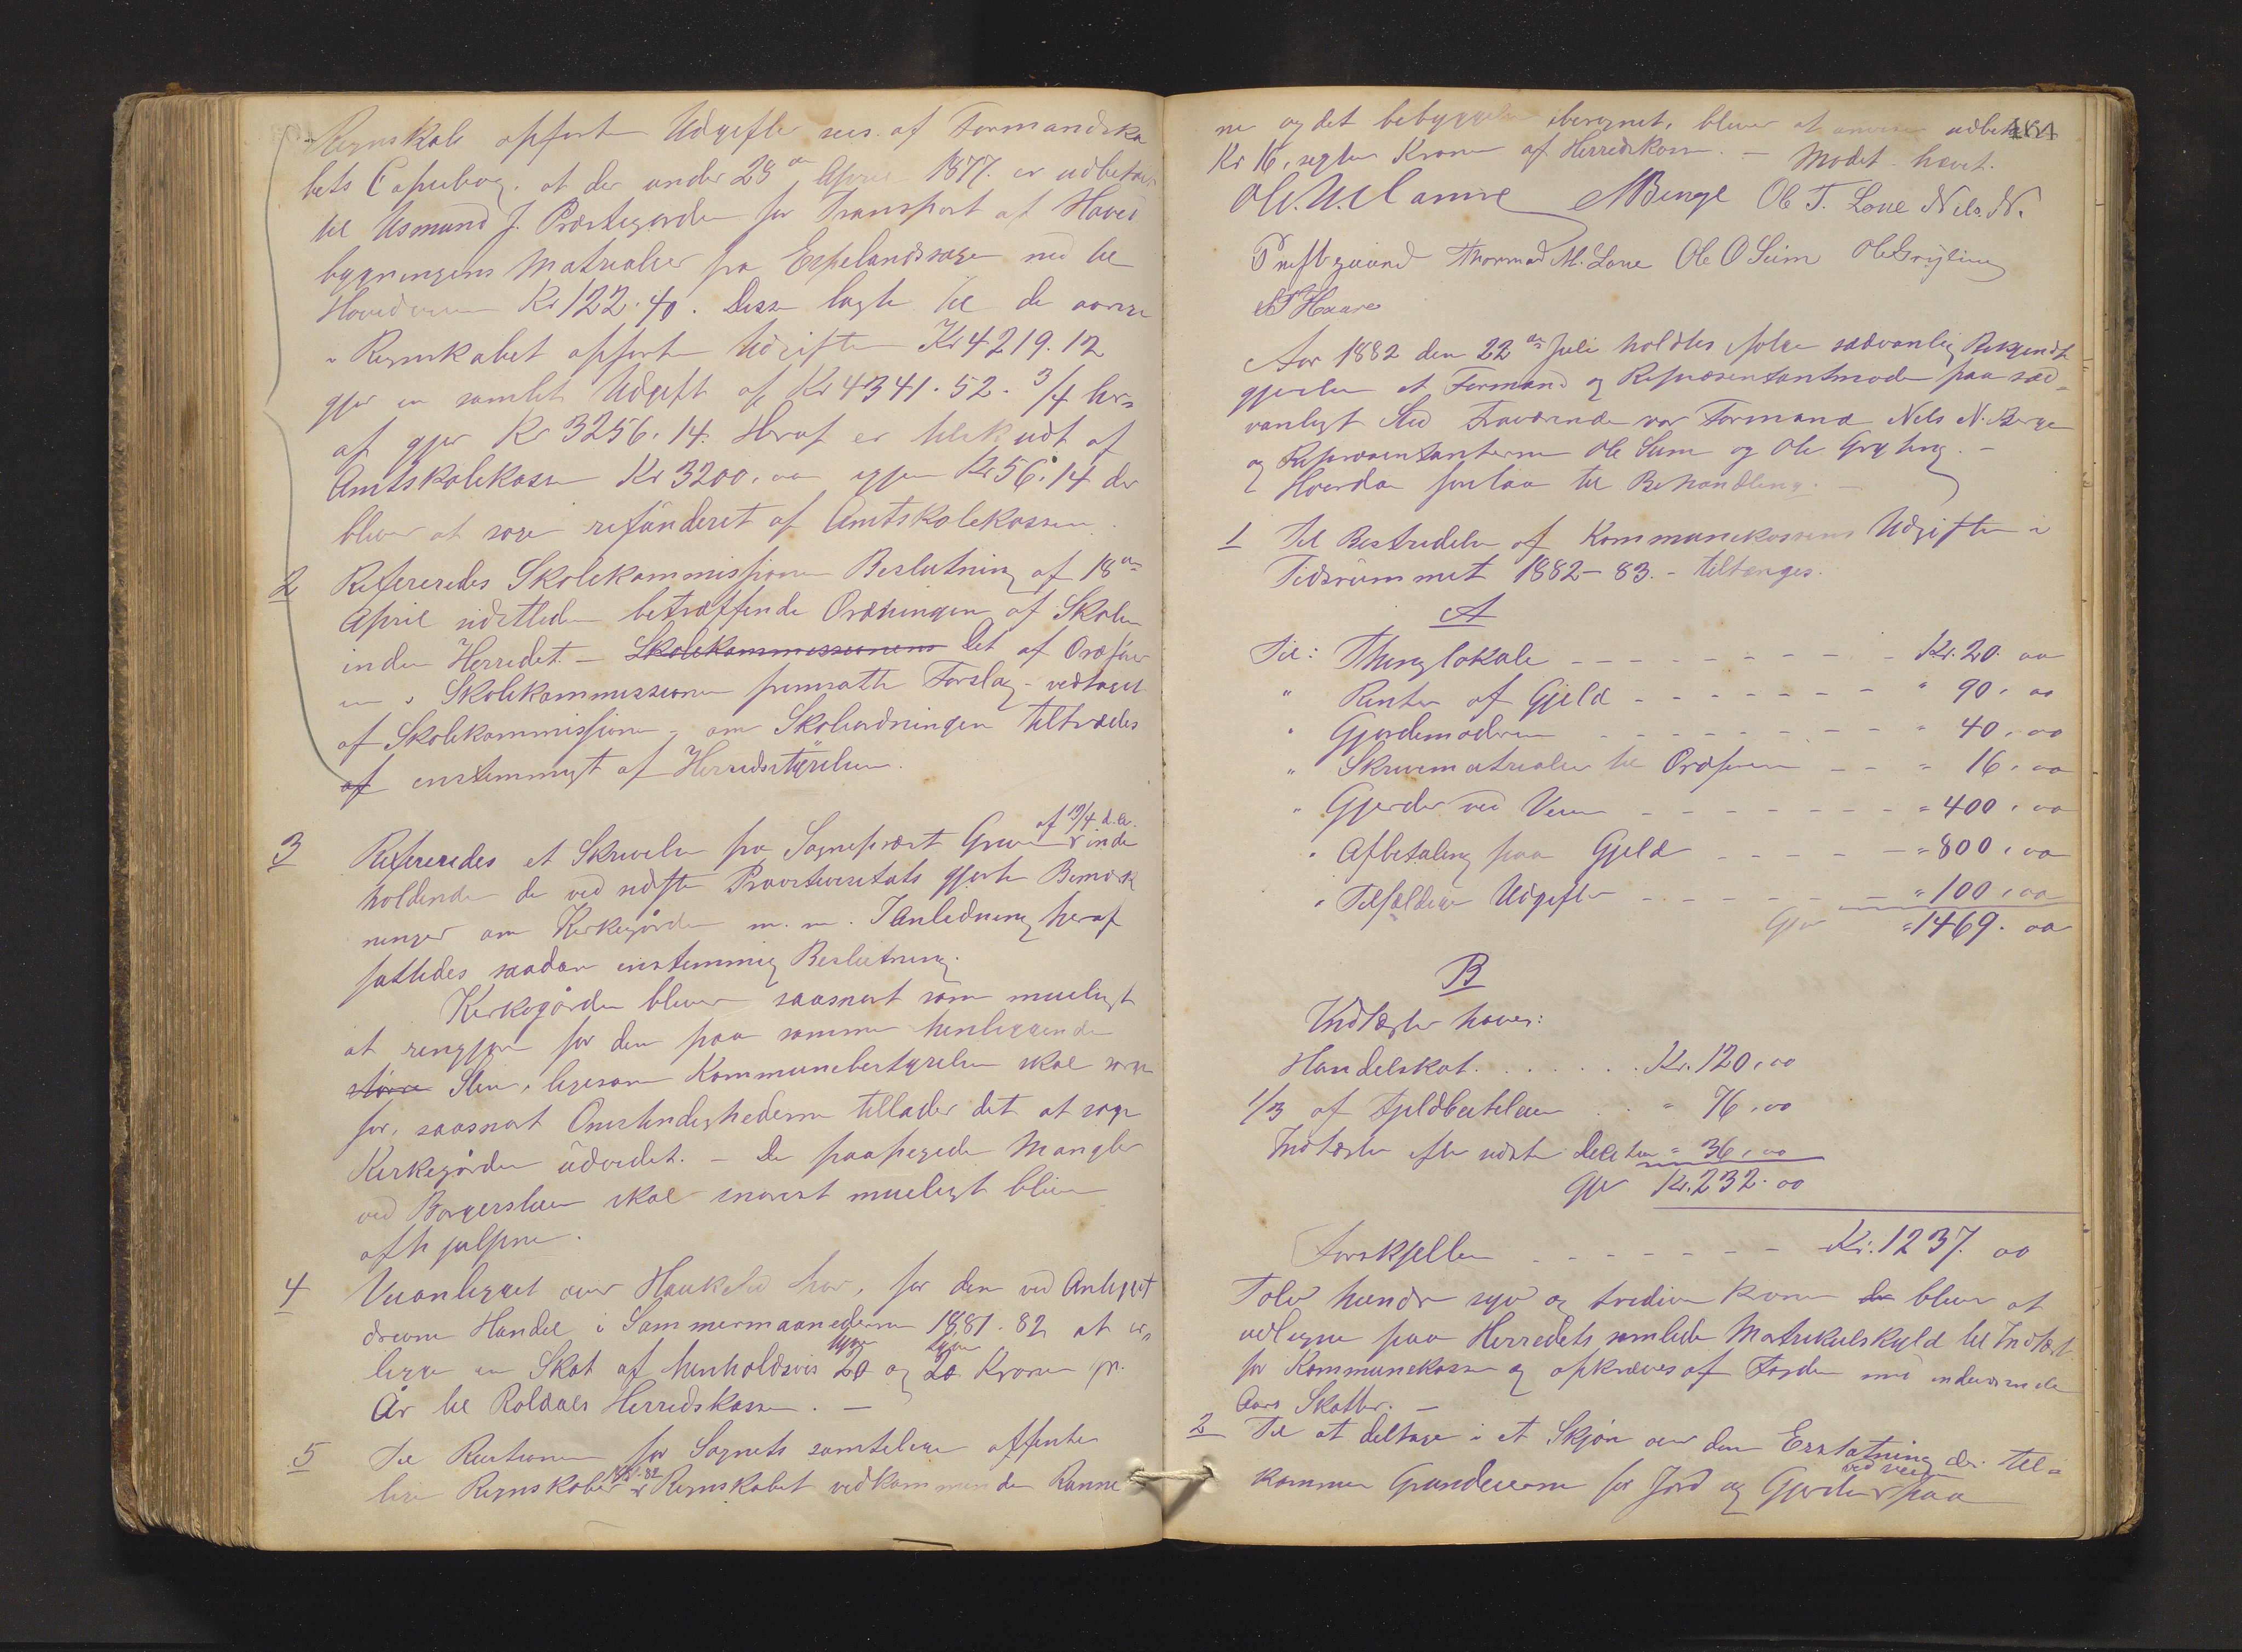 Regnskab opførte Udgifter sees af Formandska
bets Copiebog, at der under 28de April 1877 er udbetalt
til Asmund J. Præstegarden for Transport af Hoved
bygningens Matrialier fra Espelandssagen ned til
Kr 122.40. Disse lagte til de øvrige
i Regnskabet opførte Udgifter Kr 4219.12
gjør en samlet Udgift af Kr 4341.52. 3/4 her-
af gjør Kr 3256.14. Heraf er tilskudt af
Amtskolekassen Kr 3200,oo igjen Kr 56.14 der
bliver at søge refunderet af Amtskolekassen.
2 Refereredes Skolekommissionens Beslutning af 18de
April sidstleden betræffende Ordningen af Skolen
inden Herredet. – Skolekommissionens Det af Ordføre
ren i Skolekommissionen fremsatte Forslag – vedtaget
af Skolekommissionen – om Skoleordningen tiltrædes
af enstemmigt af Herredsstyrelsen.
af 19/4 d.A.
3 Refereredes et Skrivelse fra Sogneprest inde
holdende de ved sidste Provstevisitats gjorte Bemærk
ninger om Kirkegården m. m. I Anledning heraf
fattedes saadan enstemmig Beslutning.
Kirkegården bliver saasnart som mueligt
at rengjøre for den paa samme henliggende
større Sten, ligesom Kommunebestyrelsen skal sørge
for, saasnart Omstendighederne tillader det at søge
Kirkegården udvidet. – De paapegede Mangler
ved Borgerstuen skal snarest mueligt blive
afhjulpne.
4 Veianlægget over Haukelid har, for den ved Anlægget
drevne Handel i Sommermaanederne 1881-82 at er-
tyve tyve
lægge en Skat af henholdsvis 20 og 20 Kroner pr.
År til Røldals Herredskasse. –
5 Til Revisionen for Sognets samtlige offentlige
1881-82
lige Regnskaber Regnskabet vedkommende Ranne
ne og det bebyggede beregnet, bliver at anvise udbetalt
Kr 16, segsten Kroner af Herredskassen. – Mødet hævet.
N Benge Ole T. Lone Nils. N.
Prestgaard Thormod M. Lone Ole O Seim Ole Gryting
Haare
Aar 1882 den 22de Juli holdtes ifølge sædvanlig Bekjendt
gjørelse et Formand og Repræsentantmøde paa sæd-
vanligt Sted Fraværende var Formand Nels N. Berge
og Repræsentanterne Ole Seim og Ole Gryting. –
Hvorda forelaa til Behandling. –
1 Til Bestridelse af Kommunekassens Udgifter i
Tidsrummet 1882–83. – tiltænges.
A
Til: Thinglokale – – – – – – – – – Kr. 20. oo
" Renter af Gjeld – – – – – – – " 90, oo
" Gjordemoderen – – – – – – – – " 40, oo
" Skrivematrialier til Ordføreren – – " 16, oo
" Gjerder ved Veien – – – – – – – – " 400, oo
" Afbetaling paa Gjeld – – – – – " 800, oo
" Tilfældige Udgifter – – – – – – " 100, oo
Gjør " 1469. oo
B
Indtægter haves:
Handelskat . . . . . . . Kr. 120, oo
1/3 af . . " 76, oo
Indtægter efter sidste " 36, oo
Gjør Kr. 232. oo
Forskjellen – – – – – – – Kr. 1237. oo
Tolv hundr syv og tredive Kroner de bliver at
udligne paa Herredets samlede Matrikulskyld til Indtægt
for Kommunekassen og opkræves af Fogden med indeværende
Aars Skatter. –
2 Til at deltage i et Skjøn over den Erstatning der til-
ved veien
kommer Grundeierne for Jord og Gjerder paa